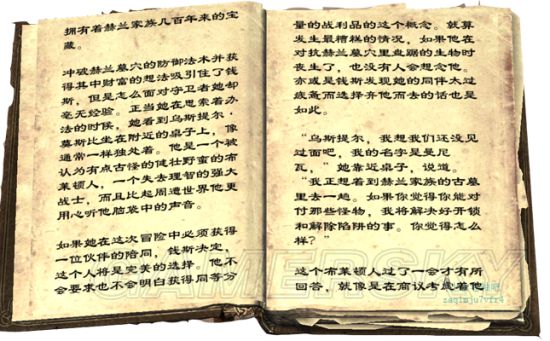 拥有着赫兰家族几百年来的宝
藏。
冲破赫兰墓穴的防御法术并获
得其中财富的想法吸引住了钱
斯，但是怎么面对守卫者她却
毫无经验。正当她在思索着办
法的时候，她看到乌斯提尔·
莫斯比坐在附近的桌子上，像
通常一样独处着。他是一个被
认为有点古怪的健壮野蛮的布
莱顿人，一个失去理智的强大
战士，而且比起周遭世界他更
用心听他脑袋中的声音。
如果她在这次冒险中必须获得
一位伙伴的陪同，钱斯决定，
这个人将是完美的选择。他不
会要求也不会明白获得同等分
量的战利品的这个概念。就算
发生最糟糕的情况，如果他在
对抗赫兰墓穴里盘踞的生物时
丧生了，也没有人会想念他。
亦或是钱斯发现她的同伴太过
疲惫而选择弃他而去的话也是
如此。
“乌斯提尔，我想我们还没见
过面吧，我的名字是曼尼
瓦，”她靠近桌子，说道。
“我正想着到赫兰家族的古墓
里去一趟。如果你觉得你能对
付那些怪物，我将解决好开锁
和解除陷阱的事。你觉得怎么
样？”
这个布莱顿人过了一会才有所
回答，就像是在商议考虑着他
GAMERSKY
zaq1mju7vfr4